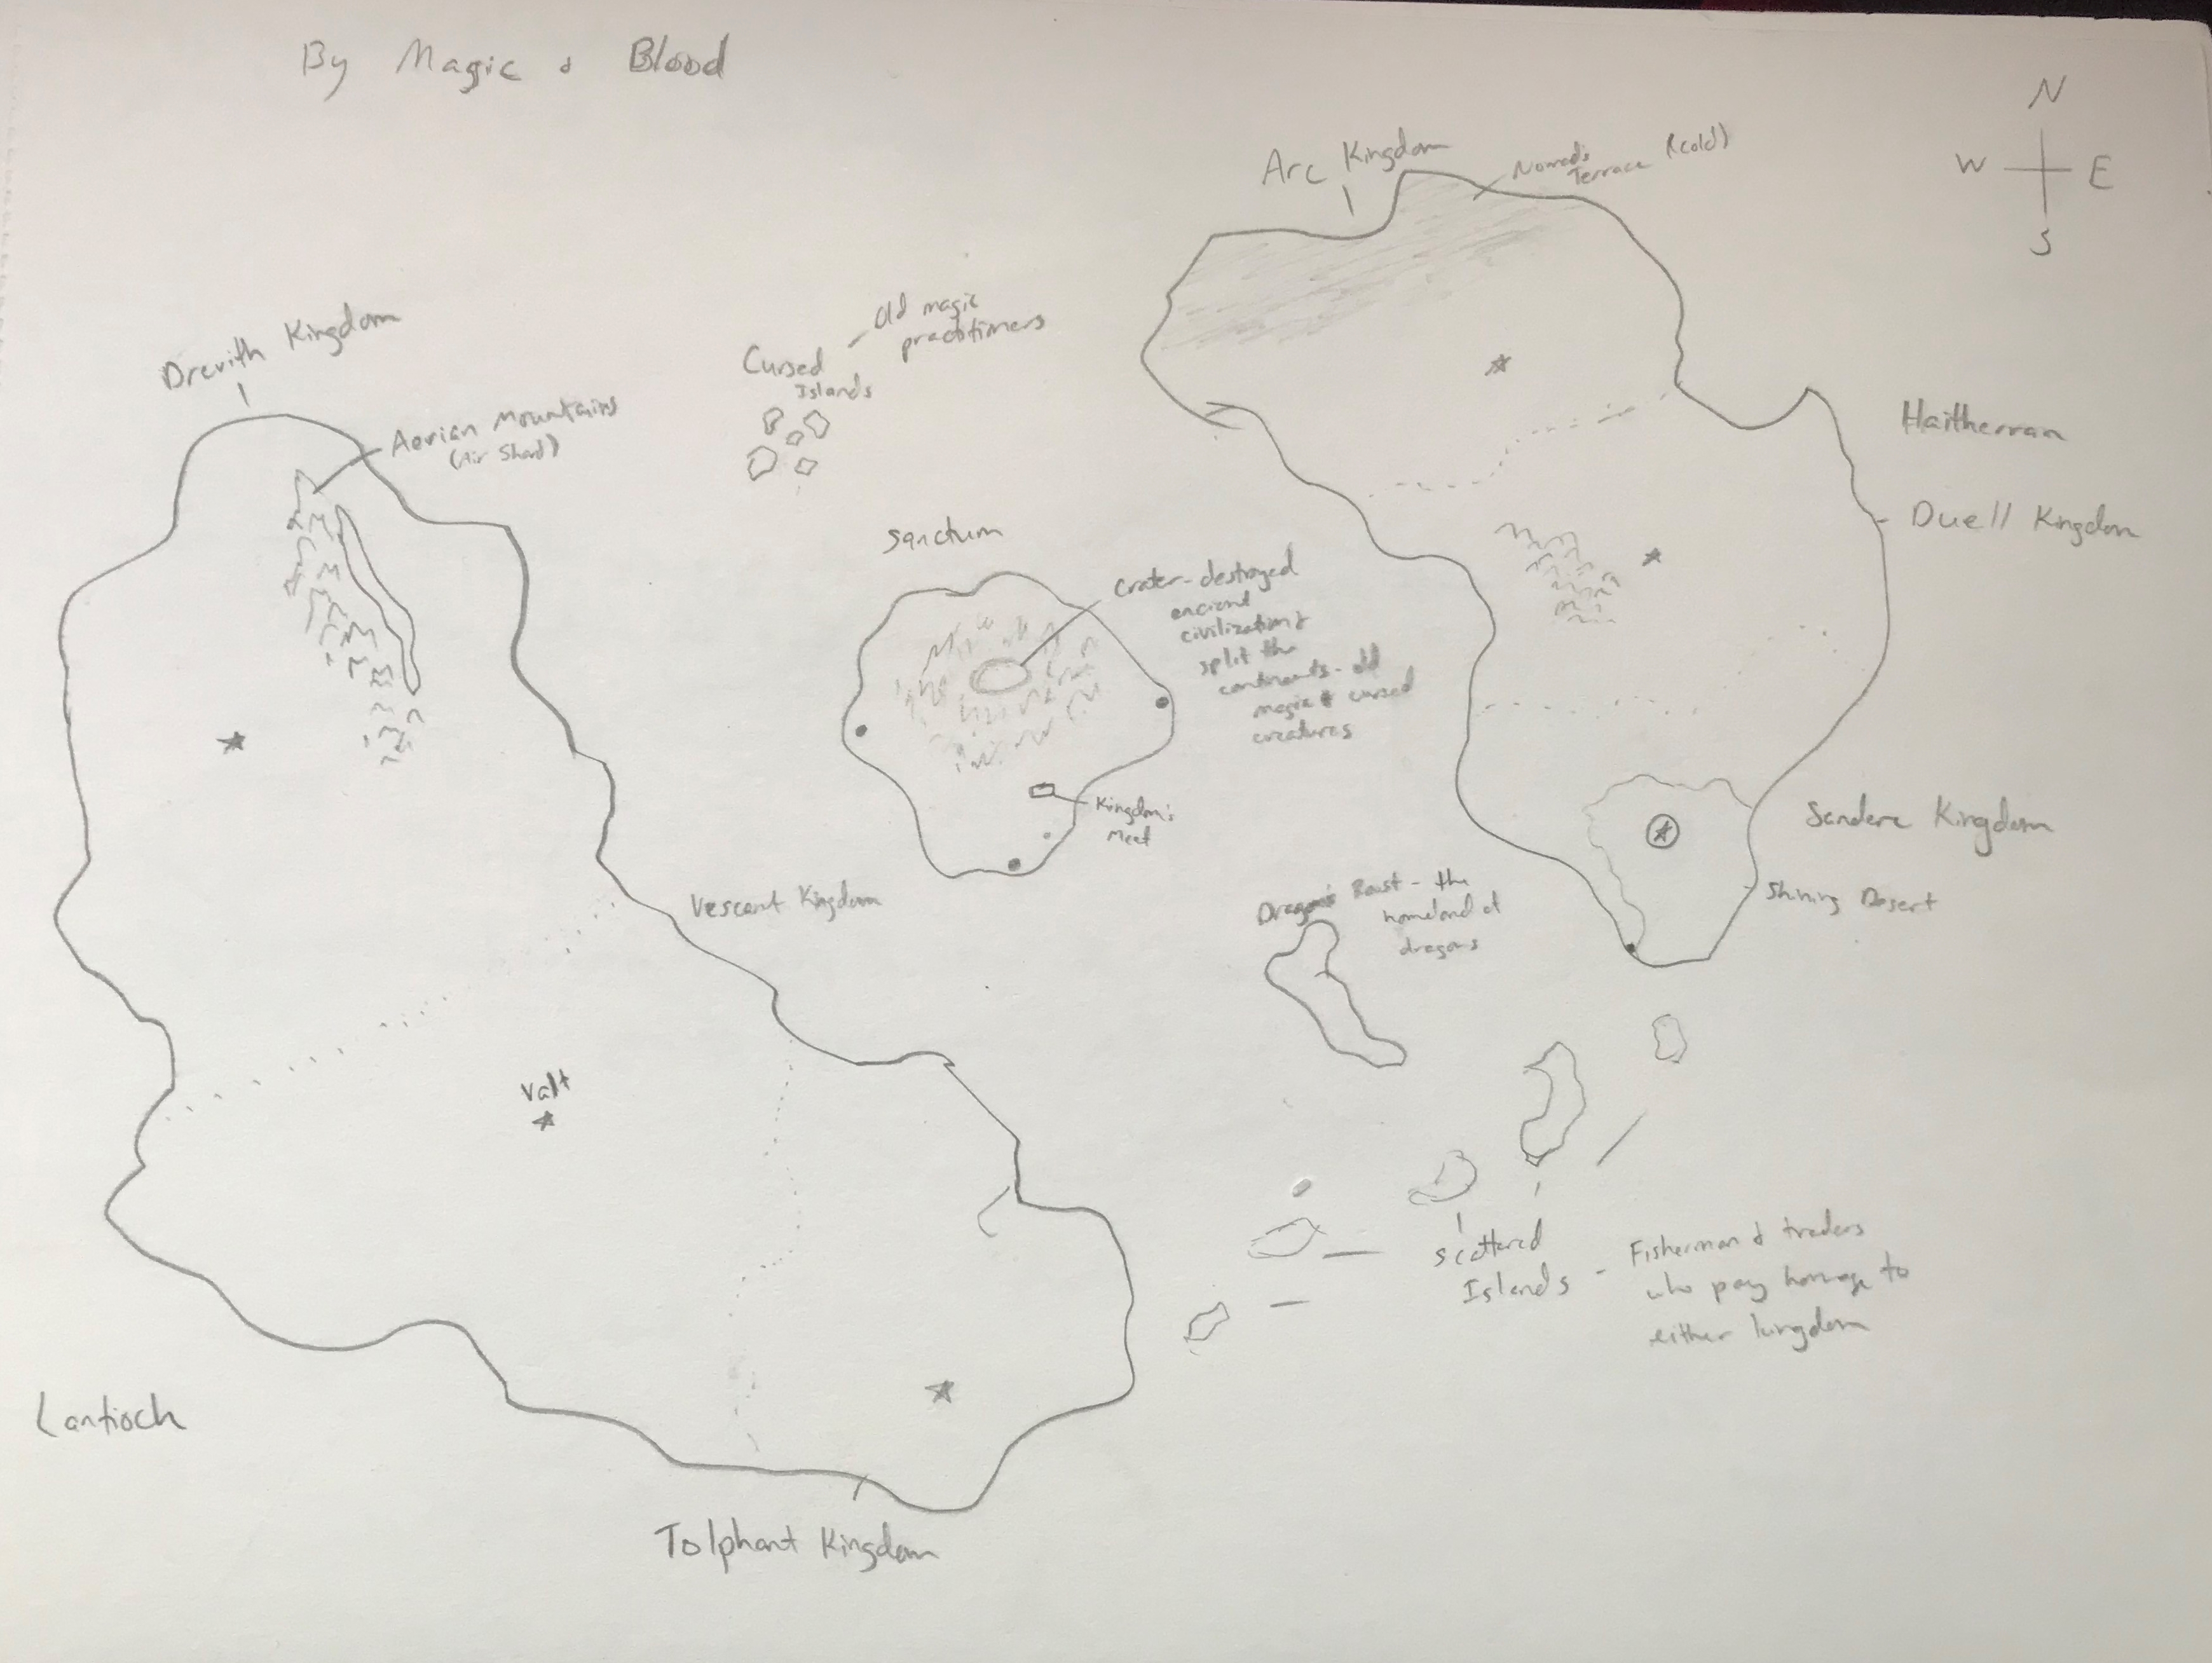 By Magic & Blood
N
W E
S
Arc Kingdom
Nomads
Terrace (cold)
Old magic
practitioners
Cursed
Islands
Drevith Kingdom
Aerian Mountains
(Air Shard)
Haitherran
Duell Kingdom
Sanctum
Crater - destroyed
encient
civilization &
split the
continents - old
magic & cursed
creatures
Kingdom's
Meet
Sandere Kingdom
Shining Desert
Vescent Kingdom
Dragon's Roust - the
homeland of
dragons
Valt
Scattered
Islands -
Fisherman & traders
who pay homage to
either kingdom
Lantioch
Tolphant Kingdom